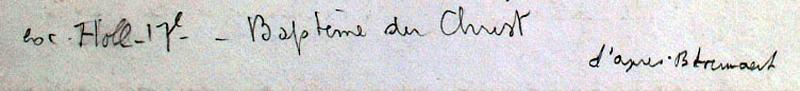 ec. Holl - 17e - - Baptême du Christ
d'après Bloemaert